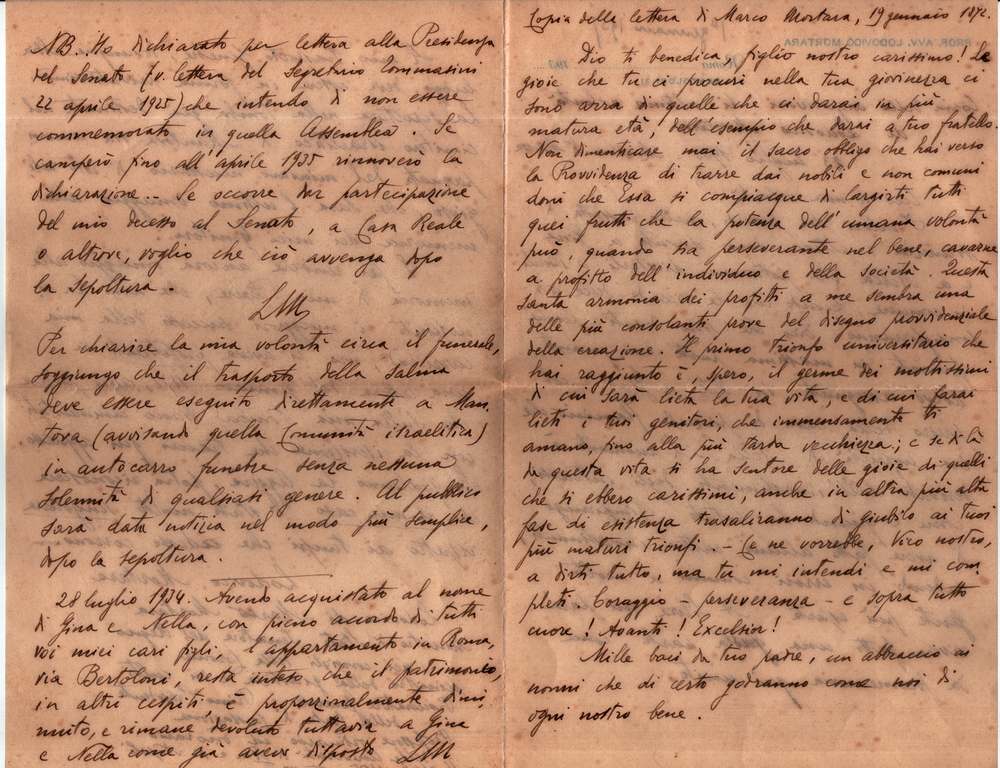 NB. Ho dichiarato per lettera alla Presidenza
del Senato (v. lettera del Segretario Tommasini
22 aprile 1925) che intendo di non essere
commemorato in quella Assemblea. Se
camperò fino all'aprile 1935 rinnoverò la
dichiarazione.. Se occorre dar partecipazione
del mio decesso al Senato, a Casa Reale
o altrove, voglio che ciò avvenga dopo
la sepoltura.
LM
Per chiarire la mia volontà circa il funerale,
soggiungo che il trasporto della salma
deve essere eseguito direttamente a Man
tova (avvisando quella Comunità israelitica)
in autocarro funebre senza nessuna
solennità di qualsiasi genere. Al pubblico
sarà data notizia nel modo più semplice,
dopo la sepoltura.
28 luglio 1934. Avendo acquistato al nome
di Gina e Nella, con pieno accordo di tutti
voi miei cari figli, l'appartamento in Roma,
via Bertoloni, resta inteso che il patrimonio,
in altri cespiti, è proporzionalmente dimi
nuito, e rimane devoluto tuttavia a Gina
e Nella come già avevo disposto LM
Copia della lettera di Marco Mortara, 19 gennaio 1872.
PROF. AVV. LODOVICO MORTARA
Dio ti benedica, figlio nostro carissimo! Le
gioie che tu ci procuri nella tua giovinezza ci
sono arra di quelle che ci darai in più
matura età, dell'esempio che darai a tuo fratello.
Non dimenticare mai il sacro obbligo che hai verso
la Provvidenza di trarre dai nobili e non comuni
doni che Essa si compiacque di largirti tutti
quei frutti che la potenza dell'umana volontà
può, quando sia perseverante nel bene, cavarne
a profitto dell'individuo e della società. Questa
santa armonia dei profitti a me sembra una
delle più consolanti prove del disegno provvidenziale
della creazione. Il primo trionfo universitario che
hai raggiunto è, spero, il germe dei moltissimi
di cui sarà lieta la tua vita, e di cui farai
lieti i tuoi genitori, che immensamente ti
amano, fino alla più tarda vecchiezza; e se di là
da questa vita si ha sentore delle gioie di quelli
che si ebbero carissimi, anche in altra più alta
fase di esistenza trasaliranno di giubilo ai tuoi
più maturi trionfi. – Ce ne vorrebbe, Vico nostro,
a dirti tutto, ma tu mi intendi e mi com
pleti. Coraggio – perseveranza – e sopra tutto
cuore! Avanti! Excelsior!
Mille baci da tuo padre, un abbraccio ai
nonni che di certo godranno come noi di
ogni nostro bene.